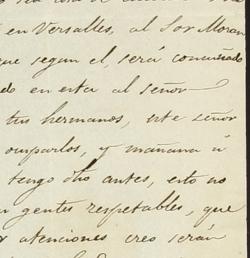 en Versalles, al Sor Moran
que segun el, será comunicado
do en esta al señor
tus hermanos, este señor
ocuparlos, y mañana ú
tengo dho antes, esto no
gentes respetables, que
atenciones creo serán